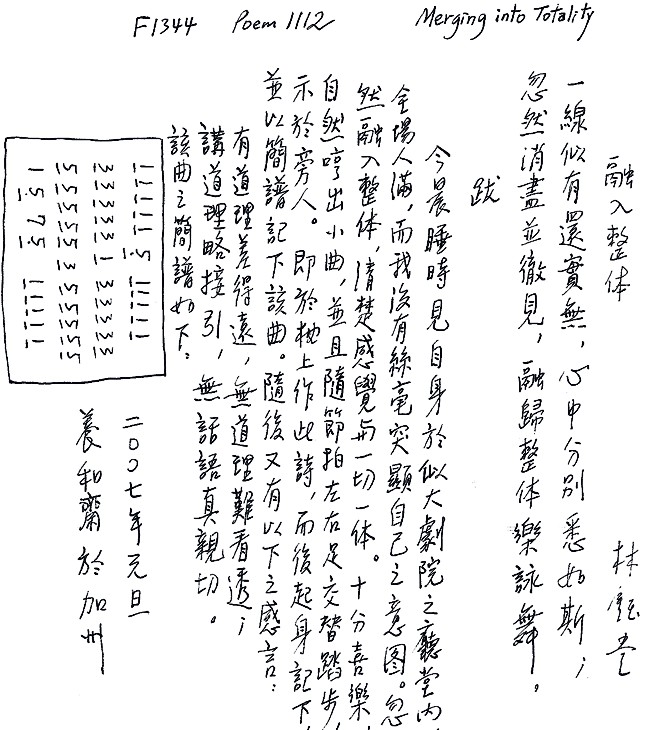 F1344 Poem 1112 Merging into Totality
融入整体
林鈺堂
一線似有還實無,心中分別悉如斯;
忽然消盡並徹見,融歸整体樂詠舞。
跋
今晨睡時見自身於似大劇院之廳堂內,
全場人滿,而我沒有絲毫突顯自己之意图。忽
然融入整体,清楚感覺与一切一体。十分喜樂,
自然哼出小曲,並且隨節拍左右足交替踏步,
示於旁人。即於枕上作此詩,而後起身記下,
並以簡譜記下該曲。隨後又有以下之感言:
有道理差得遠,無道理難看透;
講道理略接引,無話語真親切。
該曲之簡譜如下:
11111 5 11111
33333 1 33333
55555 3 55555
1 5 7 5 11111
二00七年元旦
養和齋於加州